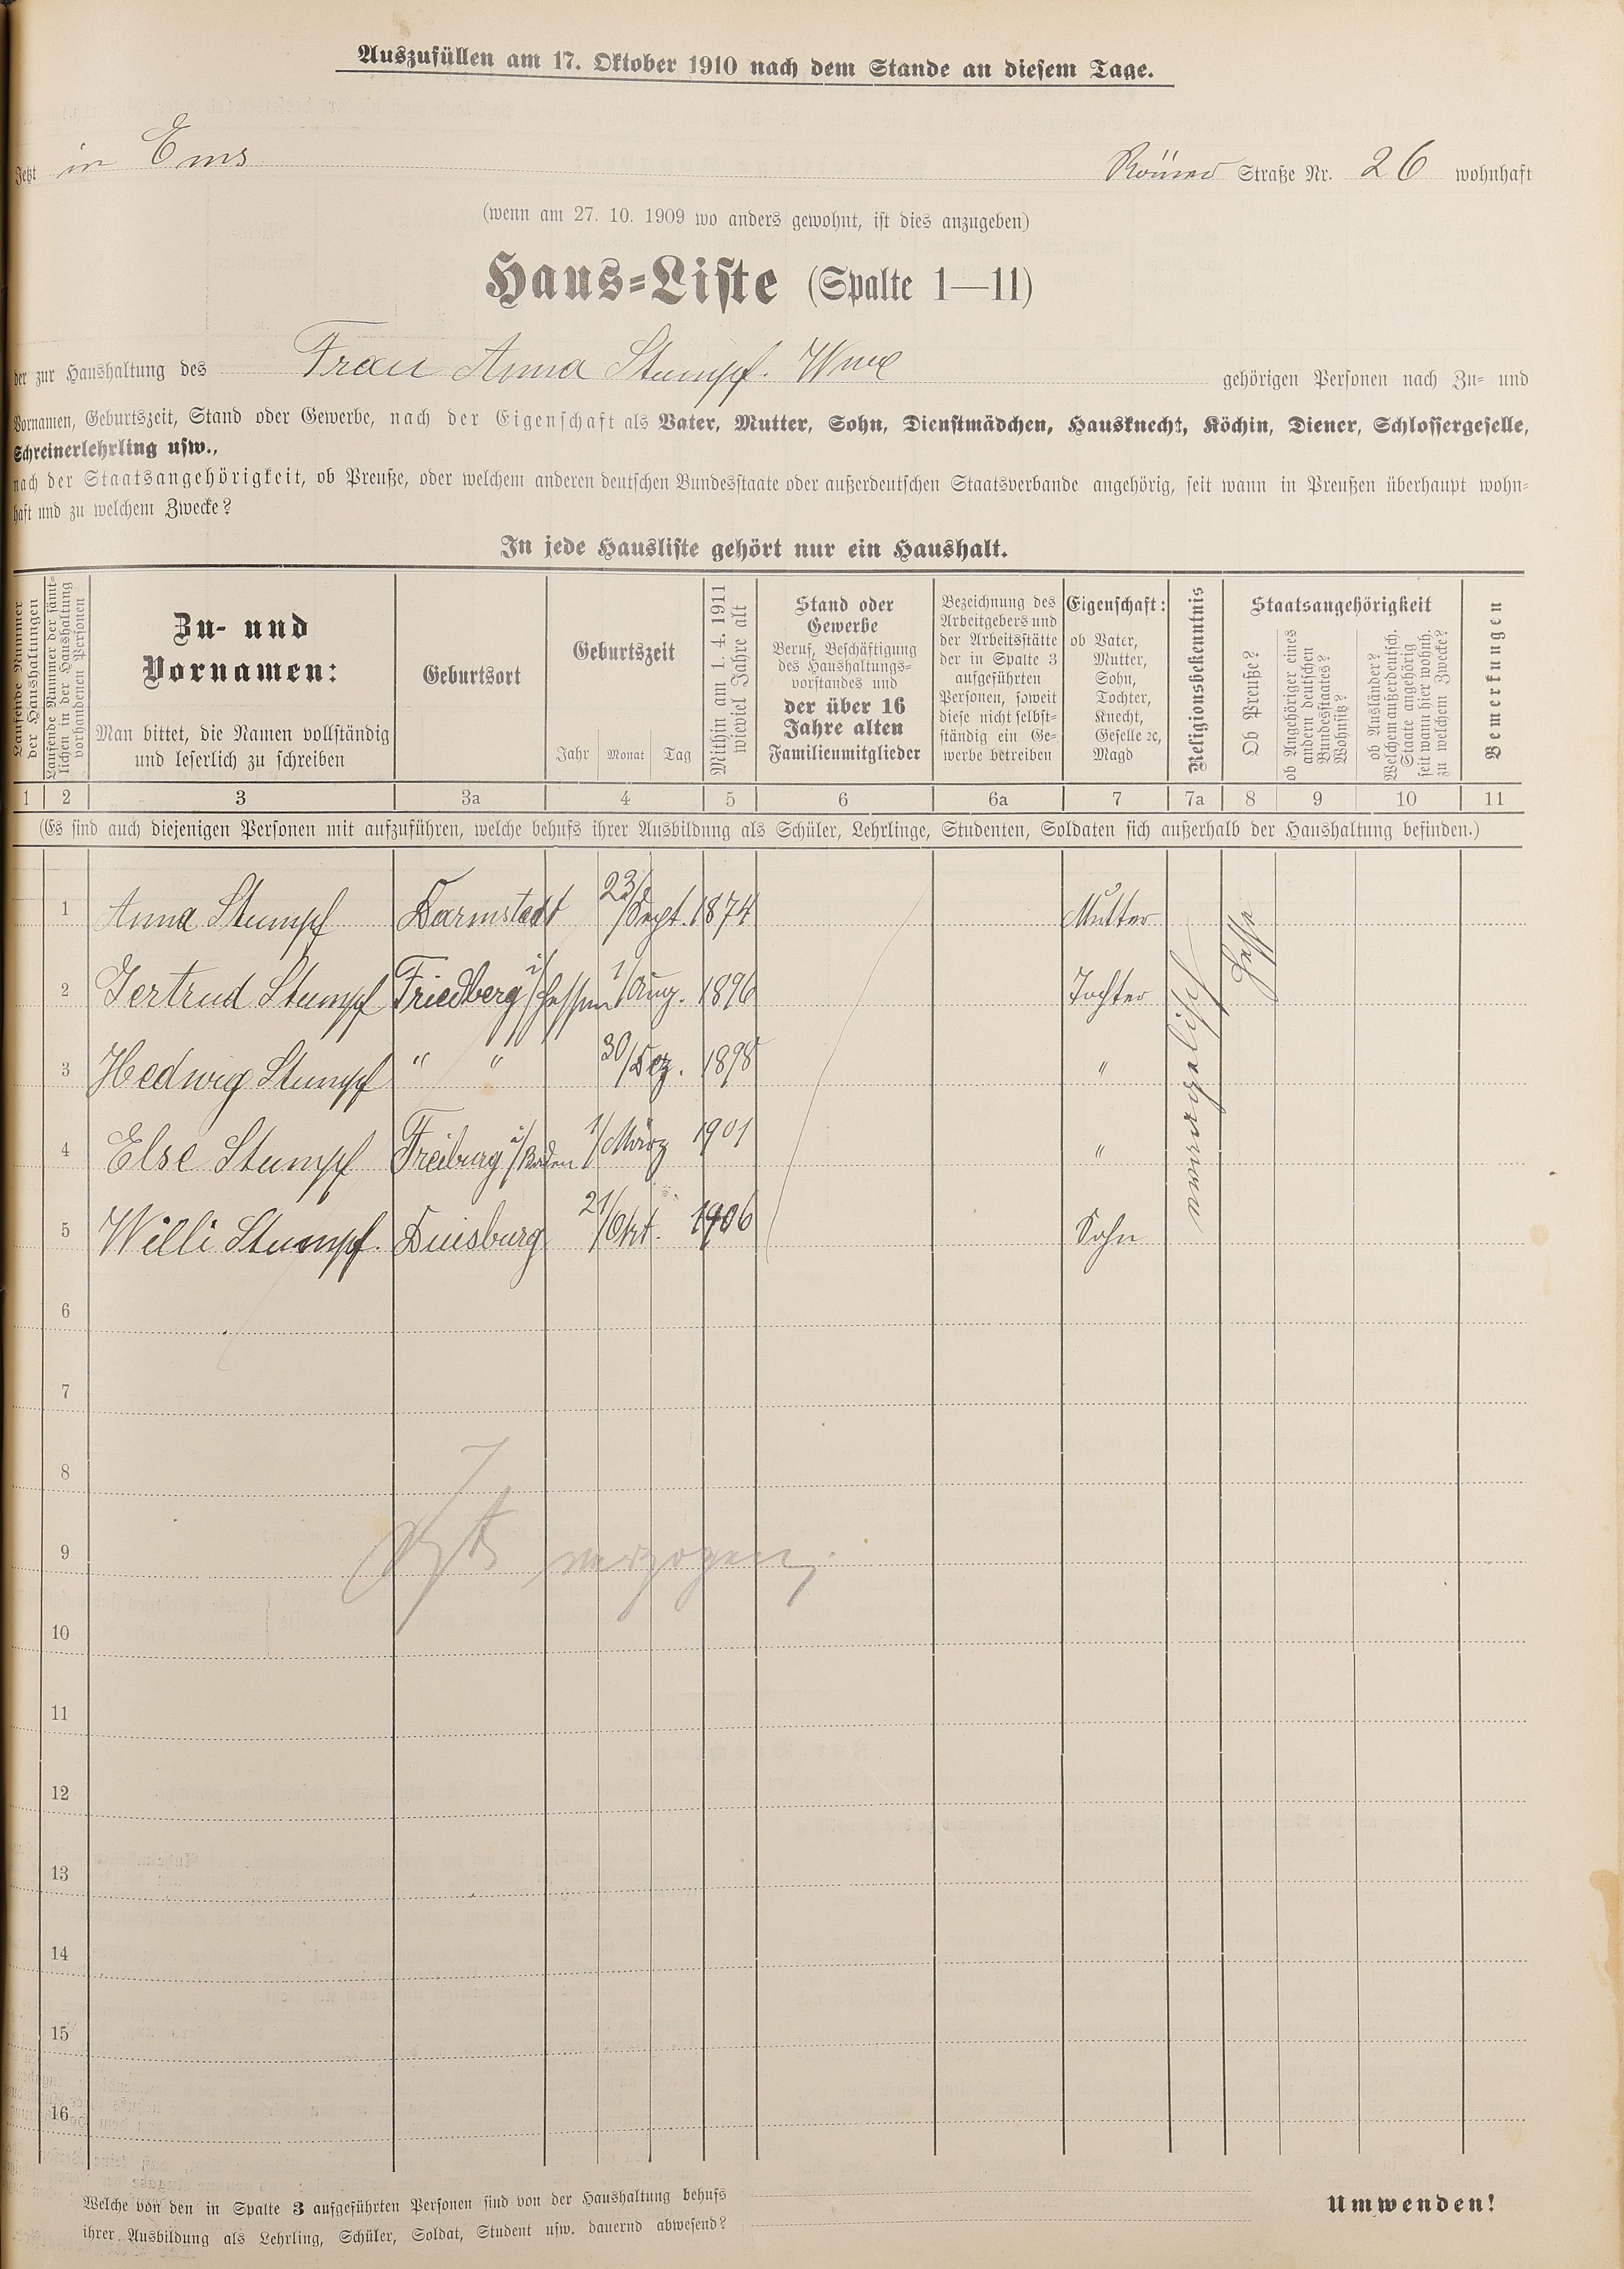 Auszufüllen am 17. Oktober 1910 nach dem Stande an diesem Tage.
Jetzt in Ems Römer Straße Nr. 26 wohnhaft
(wenn am 27. 10. 1909 wo anders gewohnt, ist dies anzugeben)
Haus-Liste (Spalte 1—11)
der zur Haushaltung des Frau Anna Stumpf. Wwe gehörigen Personen nach Zu- und
Vornamen, Geburtszeit, Stand oder Gewerbe, nach der Eigenschaft als Vater, Mutter, Sohn, Dienstmädchen, Hausknecht, Köchin, Diener, Schlossergeselle,
Schreinerlehrling usw.,
nach der Staatsangehörigkeit, ob Preuße, oder welchem anderen deutschen Bundesstaate oder außerdeutschen Staatsverbande angehörig, seit wann in Preußen überhaupt wohn-
haft und zu welchem Zwecke?
In jede Hausliste gehört nur ein Haushalt.
Laufende Nummer
der Haushaltungen
Laufende Nummer der sämt-
lichen in der Haushaltung
vorhandenen Personen
Zu- und
Vornamen:
Man bittet, die Namen vollständig
und leserlich zu schreiben
Geburtsort
Geburtszeit
Jahr Monat Tag
Mithin am 1. 4. 1911
wieviel Jahre alt
Stand oder
Gewerbe
Beruf, Beschäftigung
des Haushaltungs-
vorstandes und
der über 16
Jahre alten
Familienmitglieder
Bezeichnung des
Arbeitgebers und
der Arbeitsstätte
der in Spalte 3
aufgeführten
Personen, soweit
diese nicht selbst-
ständig ein Ge-
werbe betreiben
Eigenschaft:
ob Vater,
Mutter,
Sohn,
Tochter,
Knecht,
Geselle ec,
Magd
Religionsbekenntnis
Staatsangehörigkeit
Ob Preuße?
ob Angehöriger eines
andern deutschen
Bundesstaates?
Wohnsitz?
ob Ausländer?
Welchem außerdeutsch.
Staate angehörig
seit wann hier wohnh.
zu welchem Zwecke?
Bemerkungen
1 2 3 3a 4 5 6 6a 7 7a 8 9 10 11
(Es sind auch diejenigen Personen mit aufzuführen, welche behufs ihrer Ausbildung als Schüler, Lehrlinge, Studenten, Soldaten sich außerhalb der Haushaltung befinden.)
1 Anna Stumpf Darmstadt 23/Sept. 1874 Mutter Hesse
2 Gertrud Stumpf Friedberg i/Hessen 1/Aug. 1896 Tochter
3 Hedwig Stumpf " " 30/Dez. 1898 "
4 Else Stumpf Freiburg i/Baden 1/März 1901 "
5 Willi Stumpf. Duisburg 21/Okt. 1906 Sohn
6
7
8
9 verzogen.
10
11
12
13
14
15
16
Welche von den in Spalte 3 aufgeführten Personen sind von der Haushaltung behufs
ihrer Ausbildung als Lehrling, Schüler, Soldat, Student usw. dauernd abwesend?
Umwenden!